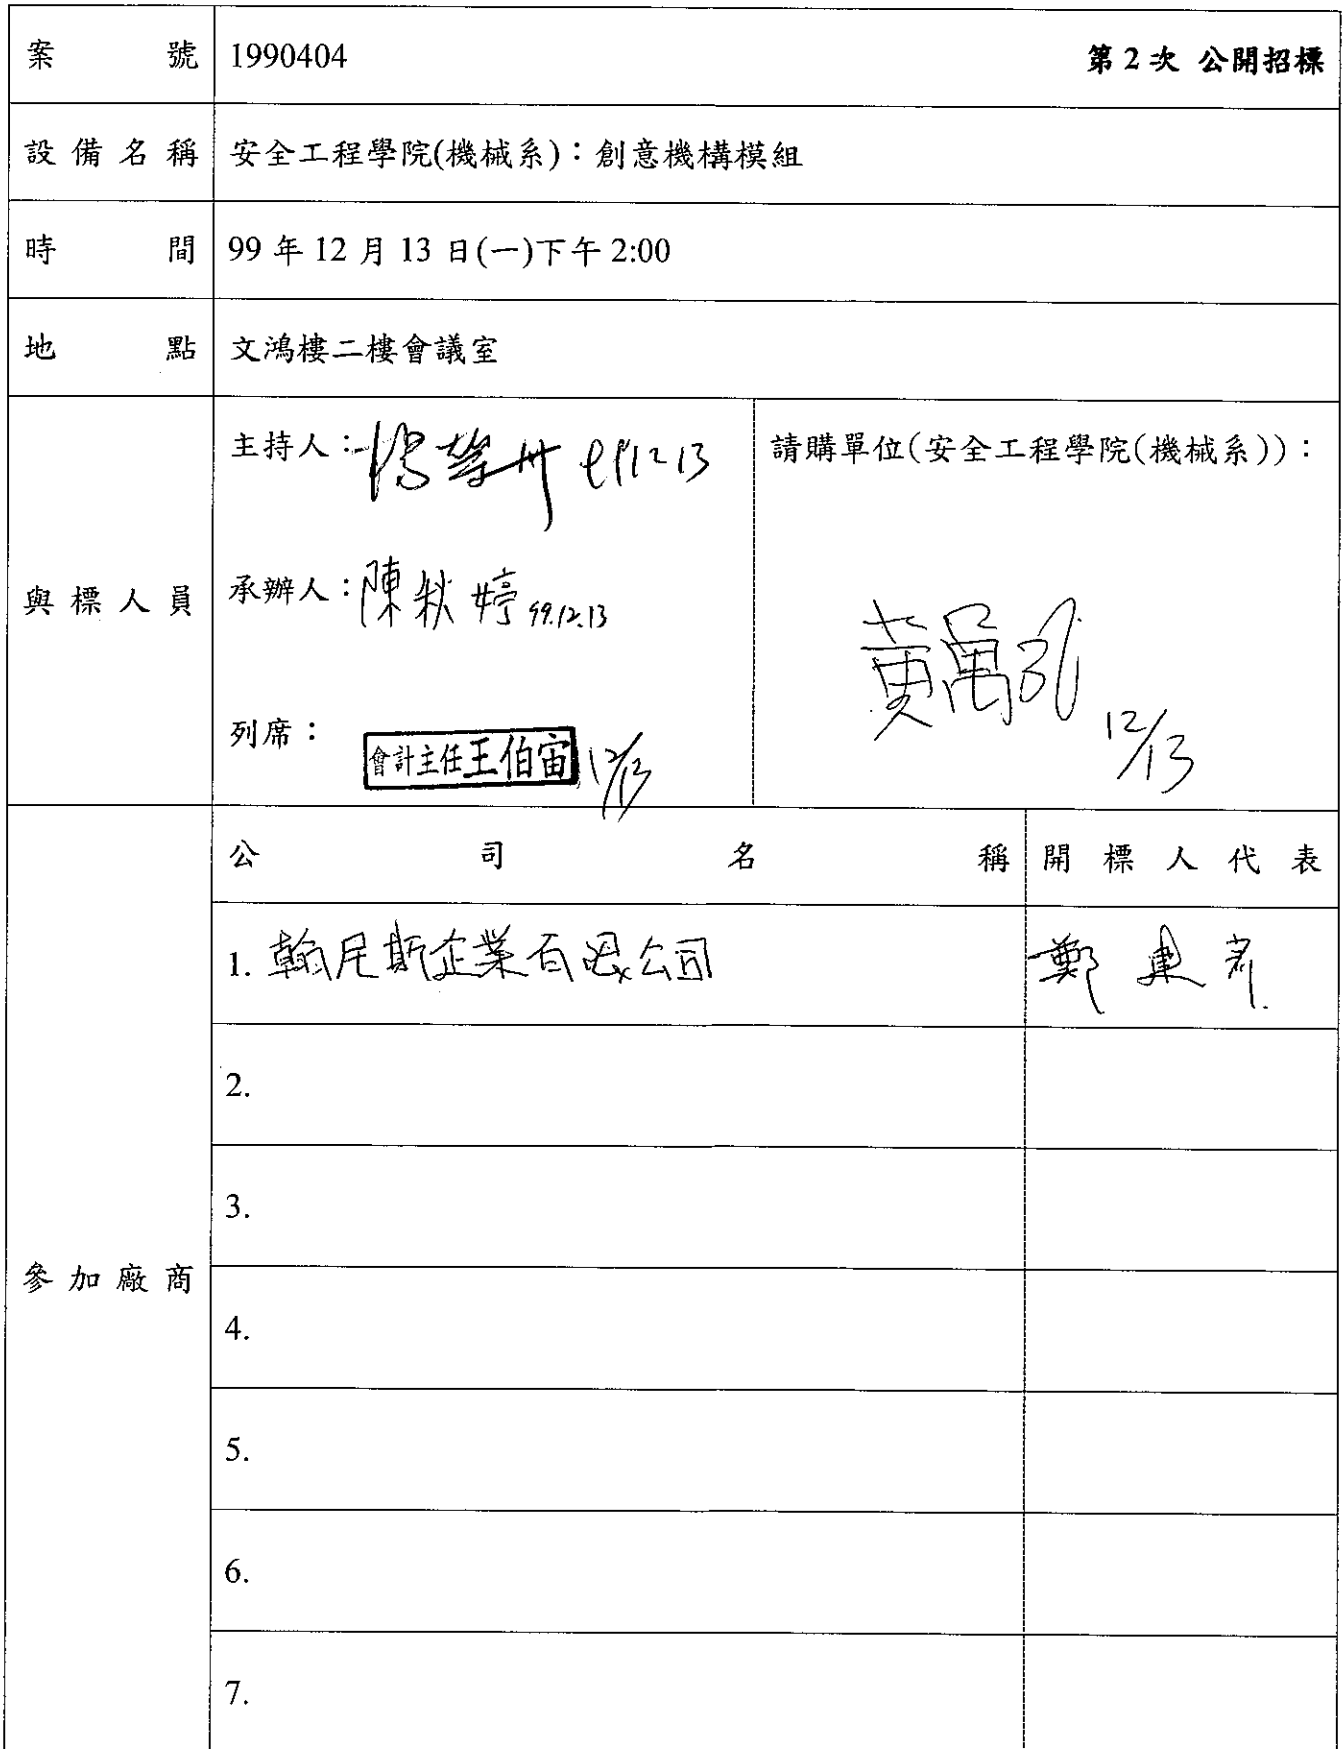 案號 1990404 第2次 公開招標
設備名稱 安全工程學院(機械系)：創意機構模組
時間 99 年 12 月 13 日(一)下午 2:00
地點 文鴻樓二樓會議室
與標人員
主持人：
承辦人：陳秋婷 99.12.13
列席：會計主任王伯宙 12/13
請購單位(安全工程學院(機械系))：
12/13
參加廠商
公司名稱 開標人代表
1. 翰尼斯企業有限公司 鄭
2.
3.
4.
5.
6.
7.